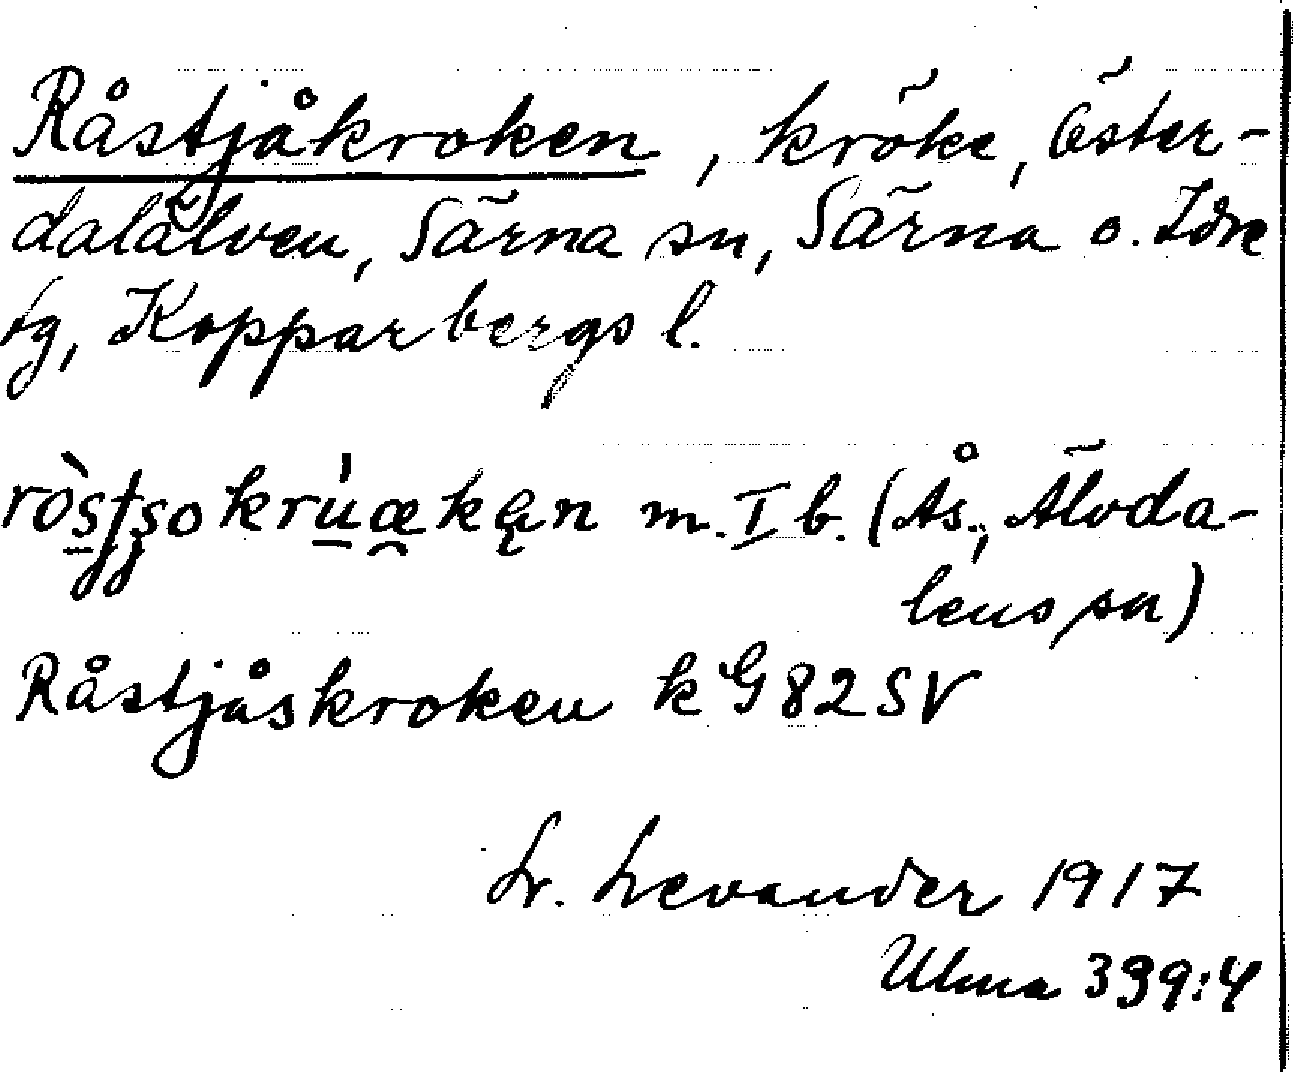 Råstjåkroken, kröke, Öster-
dalälven, Särna sn, Särna o. Idre
tg, Kopparbergs l.
m. I b. (Ås., Älvda-
lens sn)
Råstjåskroken kG 82 SV
L. Levander 1917
Ulma 339:4